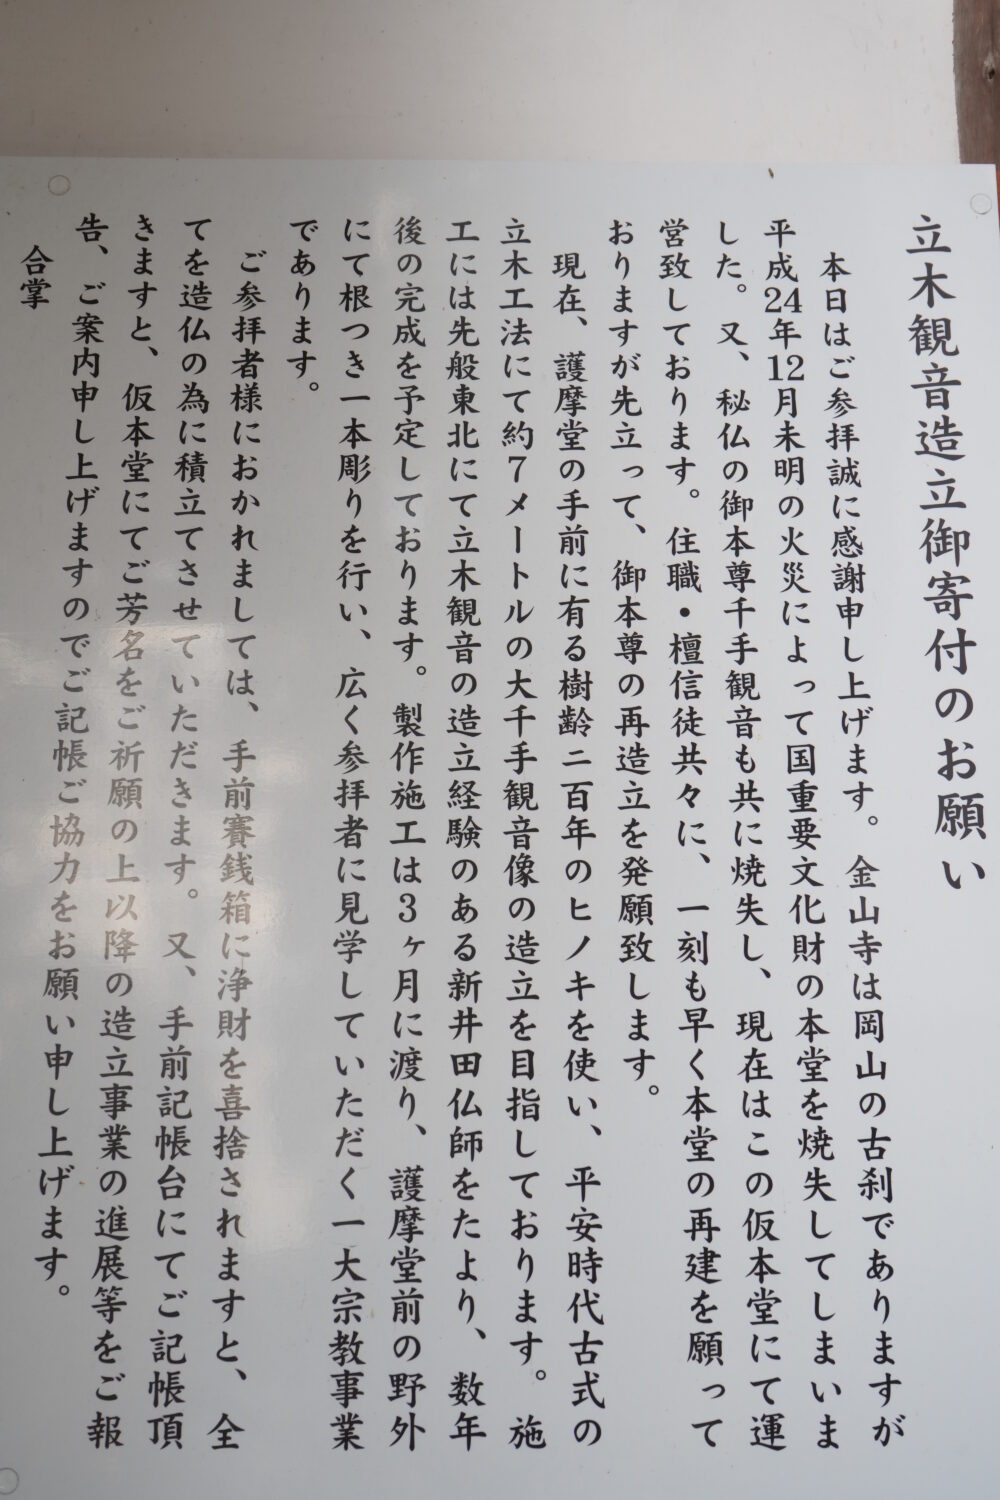 立木観音造立御寄付のお願い
本日はご参拝誠に感謝申し上げます。金山寺は岡山の古刹でありますが
平成24年12月未明の火災によって国重要文化財の本堂を焼失してしまいま
した。又、秘仏の御本尊千手観音も共に焼失し、現在はこの仮本堂にて運
営致しております。住職・檀信徒共々に、一刻も早く本堂の再建を願って
おりますが先立って、御本尊の再造立を発願致します。
現在、護摩堂の手前に有る樹齢二百年のヒノキを使い、平安時代古式の
立木工法にて約7メートルの大千手観音像の造立を目指しております。施
工には先般東北にて立木観音の造立経験のある新井田仏師をたより、数年
後の完成を予定しております。製作施工は3ヶ月に渡り、護摩堂前の野外
にて根つき一本彫りを行い、広く参拝者に見学していただく一大宗教事業
であります。
ご参拝者様におかれましては、手前賽銭箱に浄財を喜捨されますと、全
てを造仏の為に積立てさせていただきます。又、手前記帳台にてご記帳頂
きますと、仮本堂にてご芳名をご祈願の上以降の造立事業の進展等をご報
告、ご案内申し上げますのでご記帳ご協力をお願い申し上げます。
合掌